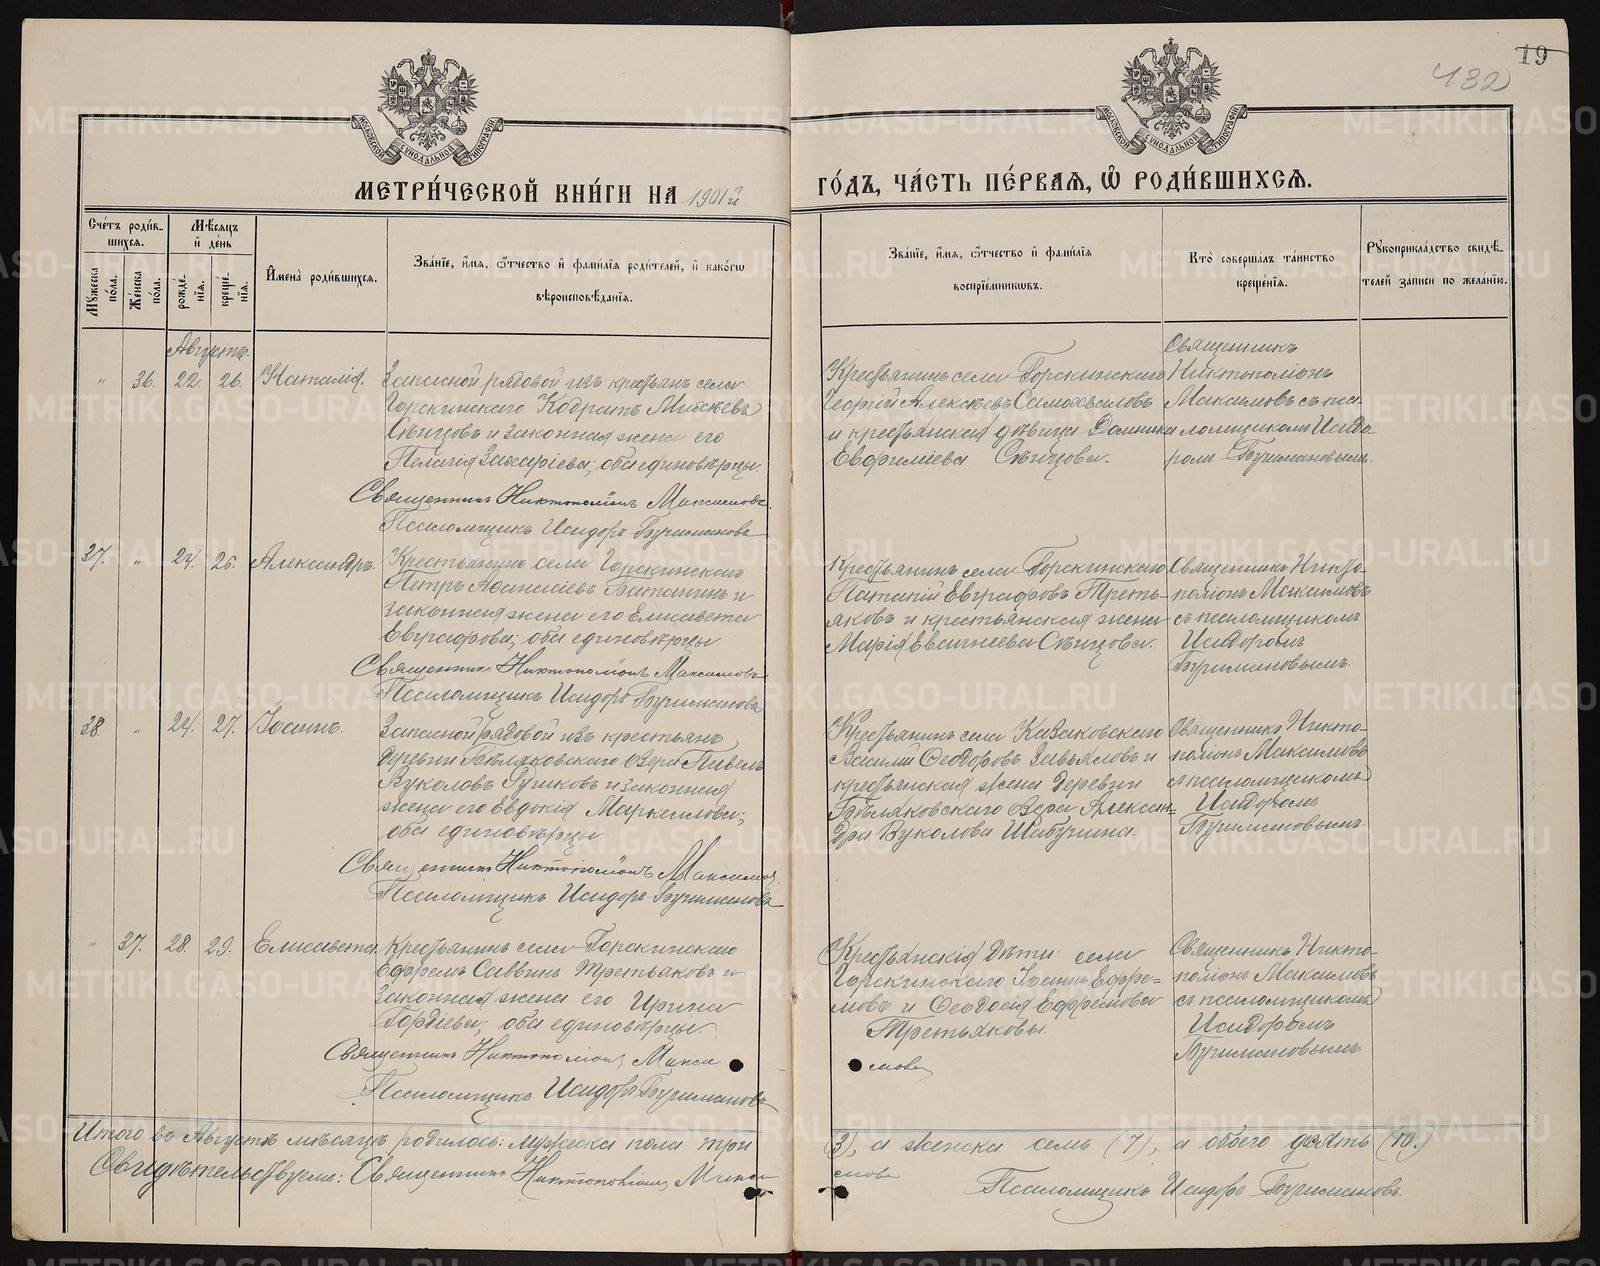 19
432
МОСКОВСКОЙ СѴНОДАЛЬНОЙ ТИПОГРАФІИ
МОСКОВСКОЙ СѴНОДАЛЬНОЙ ТИПОГРАФІИ
МЕТРИ́ЧЕСКОЙ КНИ́ГИ НА 1901й ГО́ДЪ, ЧА́СТЬ ПЕ́РВАЯ, Ѽ РОДИ́ВШИХСЯ.
Сче́тъ роди́в-
шихся.
Мѣ́сяцъ
и҆ де́нь
Мꙋ́жеска
по́ла.
Же́нска
по́ла.
рожде́-
нїя.
креще́-
нїя.
И҆мена̀ роди́вшихся.
Зва́нїе, и҆́мя, ѻ҆́тчество и҆ фами́лїя роди́телей, и҆ како́гѡ
вѣроисповѣ́данїя.
Зва́нїе, и҆́мя, ѻ҆́тчество и҆ фами́лїя
воспрїе́мниковъ.
Кто̀ соверша́лъ та́инство
креще́нїя.
Рꙋкоприкла́дство свидѣ́-
телей за́писи по жела́нїю.
Августъ.
" 36. 22. 26. Наталія.
Запасной рядовой изъ крестьянъ села
Горскинскаго Кодратъ Михѣевъ
Свѣнцовъ и законная жена его
Пелагія Захаріева; оба единовѣрцы.
Священникъ Никтополіонъ Максимовъ
Псаломщикъ Исидоръ Бушмановъ
Крестьянинъ села Горскинскаго
Георгій Алексѣевъ Самохваловъ
и крестьянская дѣвица Домника
Евфиміева Свѣнцова.
Священникъ
Никтополіонъ
Максимовъ съ пса-
ломщикомъ Исидо-
ромъ Бушмановымъ.
37. " 24. 26. Александръ.
Крестьянинъ села Горскинскаго
Петръ Аѳанасіевъ Баталинъ и
законная жена его Елисавета
Евграфова; оба единовѣрцы.
Священникъ Никтополіонъ Максимовъ
Псаломщикъ Исидоръ Бушмановъ
Крестьянинъ села Горскинскаго
Патапій Евграфовъ Треть-
яковъ и крестьянская жена
Марія Евагнеева Свѣнцова.
Священникъ Никто-
поліонъ Максимовъ
съ псаломщикомъ
Исидоромъ
Бушмановымъ.
38 " 24. 27. Іоаннъ.
Запасной рядовой изъ крестьянъ
деревни Бѣляковскаго Озера Павелъ
Вуколовъ и законная
жена его Евдокія Маркеллова;
оба единовѣрцы
Священникъ Никтополіонъ Максимовъ
Псаломщикъ Исидоръ Бушмановъ
Крестьянинъ села Казаковскаго
Василій Ѳеодоровъ Завьяловъ и
крестьянская жена деревни
Бѣляковскаго Озера Алексан-
дра Вуколова Шабунина.
Священникъ Никто-
поліонъ Максимовъ
съ псаломщикомъ
Исидоромъ
Бушмановымъ.
" 37. 28. 29. Елисавета.
Крестьянинъ села Горскинскаго
Ефремъ Саввинъ Третьяковъ и
законная жена его Ирина
Гордіева; оба единовѣрцы.
Священникъ Никтополіонъ Макси
мовъ
Псаломщикъ Исидоръ Бушмановъ
Крестьянскія дѣти села
Горскинскаго Іоаннъ Ефре-
мовъ и Ѳеодосія Ефремова
Третьяковы.
Священникъ Никто-
поліонъ Максимовъ
съ псаломщикомъ
Исидоромъ
Бушмановымъ
Итого въ Августѣ мѣсяцѣ родилось: мужеска пола три (3), а женска семь (7), а обоего десять (10.)
Свидѣтельствуемъ: Священникъ Никтополіонъ Макси
мовъ
Псаломщикъ Исидоръ Бушмановъ.
METRIKI.GASO-URAL.RU